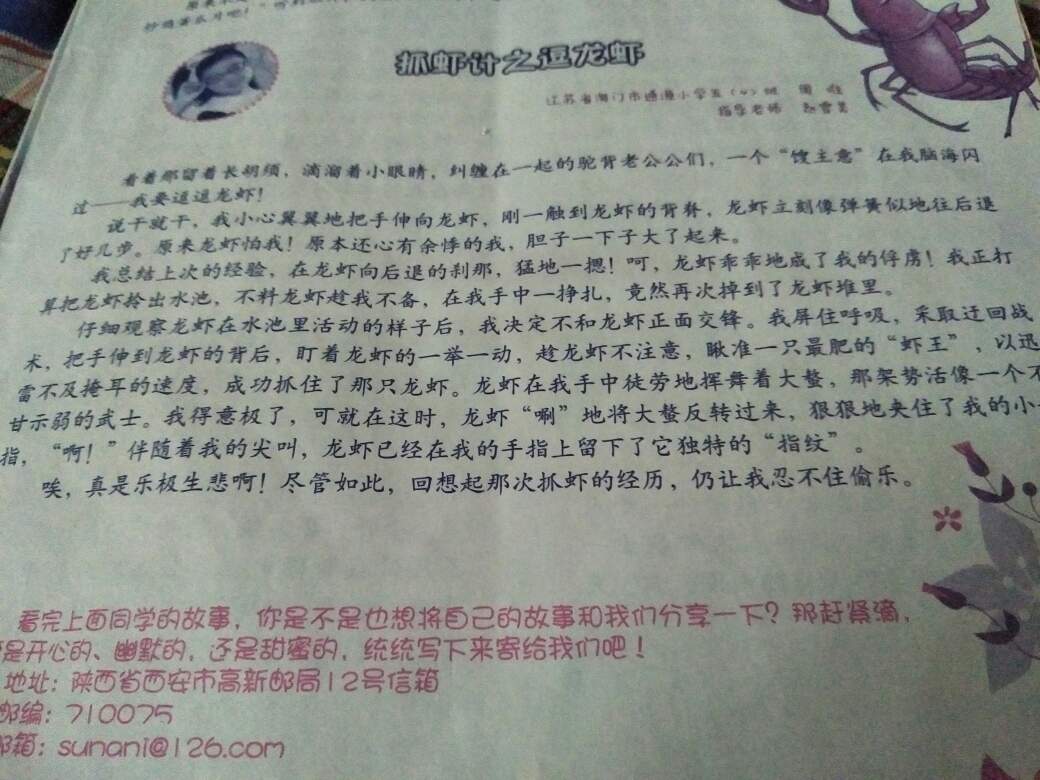 抓虾计之逗龙虾
江苏省海门市通源小学五（4）班
指导老师
看着那留着长胡须，滴溜着小眼睛，纠缠在一起的驼背老公公们，一个“馊主意”在我脑海闪
过——我要逗逗龙虾！
说干就干，我小心翼翼地把手伸向龙虾，刚一触到龙虾的背脊，龙虾立刻像弹簧似地往后退
了好几步。原来龙虾怕我！原本还心有余悸的我，胆子一下子大了起来。
我总结上次的经验，在龙虾向后退的刹那，猛地一摁！呵，龙虾乖乖地成了我的俘虏！我正打
算把龙虾拎出水池，不料龙虾趁我不备，在我手中一挣扎，竟然再次掉到了龙虾堆里。
仔细观察龙虾在水池里活动的样子后，我决定不和龙虾正面交锋。我屏住呼吸，采取迂回战
术，把手伸到龙虾的背后，盯着龙虾的一举一动，趁龙虾不注意，瞅准一只最肥的“虾王”，以迅
雷不及掩耳的速度，成功抓住了那只龙虾。龙虾在我手中徒劳地挥舞着大螯，那架势活像一个不
甘示弱的武士。我得意极了，可就在这时，龙虾“唰”地将大螯反转过来，狠狠地夹住了我的小
指，“啊！”伴随着我的尖叫，龙虾已经在我的手指上留下了它独特的“指纹”。
唉，真是乐极生悲啊！尽管如此，回想起那次抓虾的经历，仍让我忍不住偷乐。
看完上面同学的故事，你是不是也想将自己的故事和我们分享一下？那赶紧滴，
是开心的、幽默的，还是甜蜜的，统统写下来寄给我们吧！
地址：陕西省西安市高新邮局12号信箱
邮编：710075
邮箱：sunani@126.com